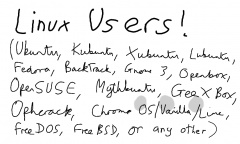 Linux Users!
(Ubuntu, Kubuntu, Xubuntu, Lubuntu,
Fedora, BackTrack, Gnome 3, Openbox,
OpenSUSE, Mythbuntu, GeeXBox,
Ophcrack, Chrome OS/Vanilla/Lime,
FreeDOS, FreeBSD, or any other)